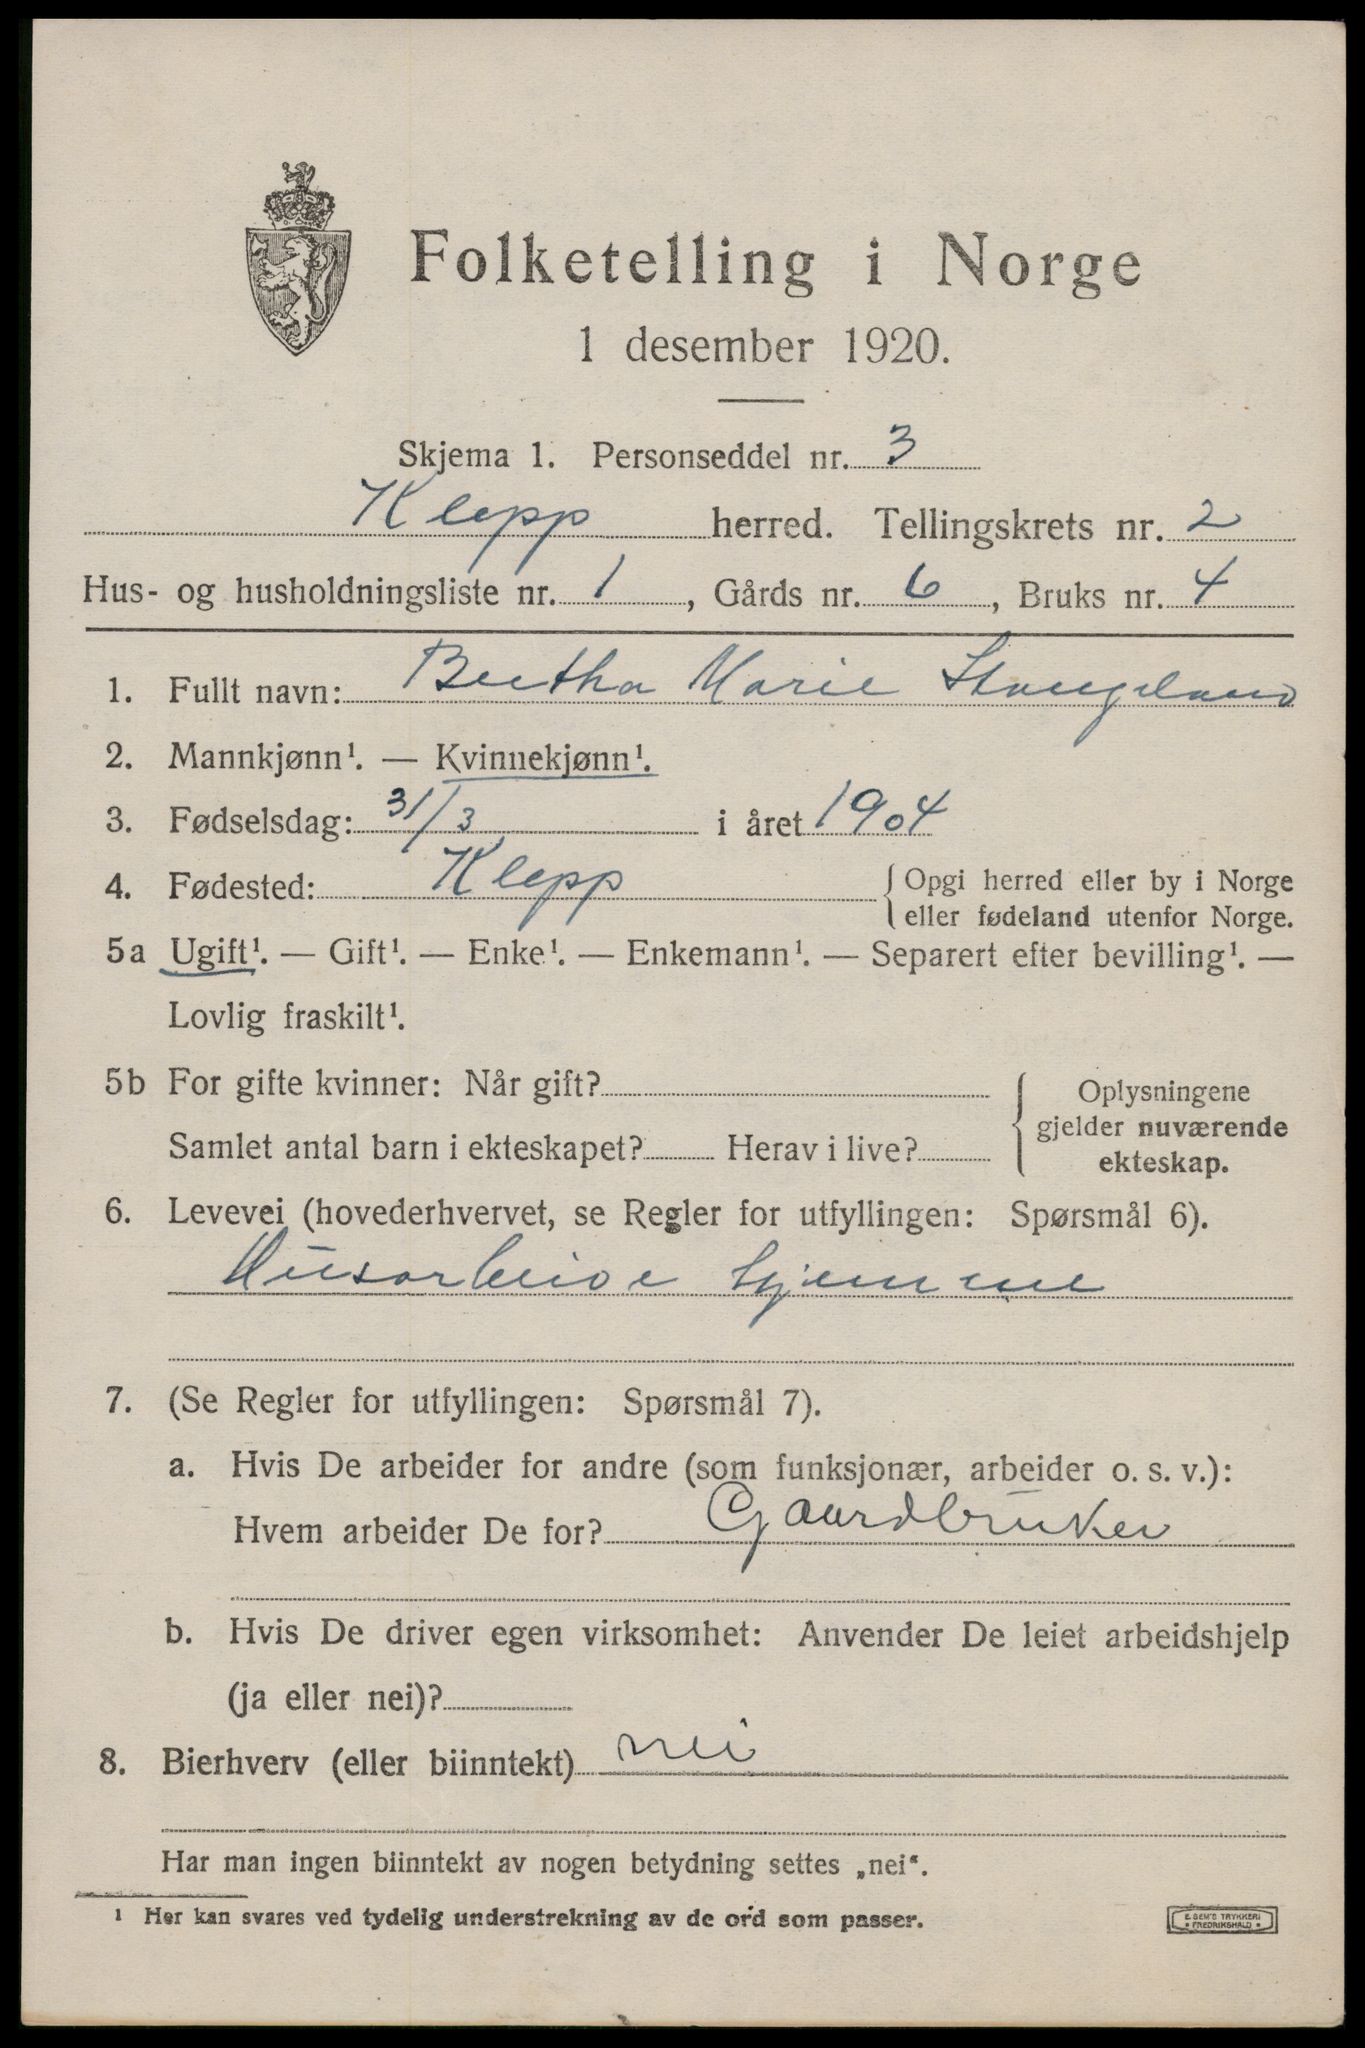 Folketelling i Norge
1 desember 1920.
Skjema 1. Personseddel nr. 3
Klepp herred. Tellingskrets nr. 2
Hus- og husholdningsliste nr. 1, Gårds nr. 6, Bruks nr. 4
1. Fullt navn: Bertha Marie Stangeland
2. Mannkjønn¹. — Kvinnekjønn¹.
3. Fødselsdag: 31/3 i året 1904
4. Fødested: Klepp { Opgi herred eller by i Norge
eller fødeland utenfor Norge.
5a Ugift¹. — Gift¹. — Enke¹. — Enkemann¹. — Separert efter bevilling¹. —
Lovlig fraskilt¹.
5b For gifte kvinner: Når gift? { Oplysningene
gjelder nuværende
Samlet antal barn i ekteskapet? Herav i live?
ekteskap.
6. Levevei (hovederhvervet, se Regler for utfyllingen: Spørsmål 6).
Husarbeide hjemme
7. (Se Regler for utfyllingen: Spørsmål 7).
a. Hvis De arbeider for andre (som funksjonær, arbeider o. s. v.):
Hvem arbeider De for? Gaardbruker
b. Hvis De driver egen virksomhet: Anvender De leiet arbeidshjelp
(ja eller nei)?
8. Bierhverv (eller biinntekt) nei
Har man ingen biinntekt av nogen betydning settes „nei“.
¹ Her kan svares ved tydelig understrekning av de ord som passer.
E. SEM'S TRYKKERI
• FREDRIKSHALD •